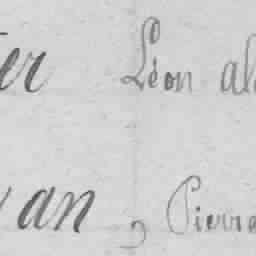 ter Léon al
an, Pierre